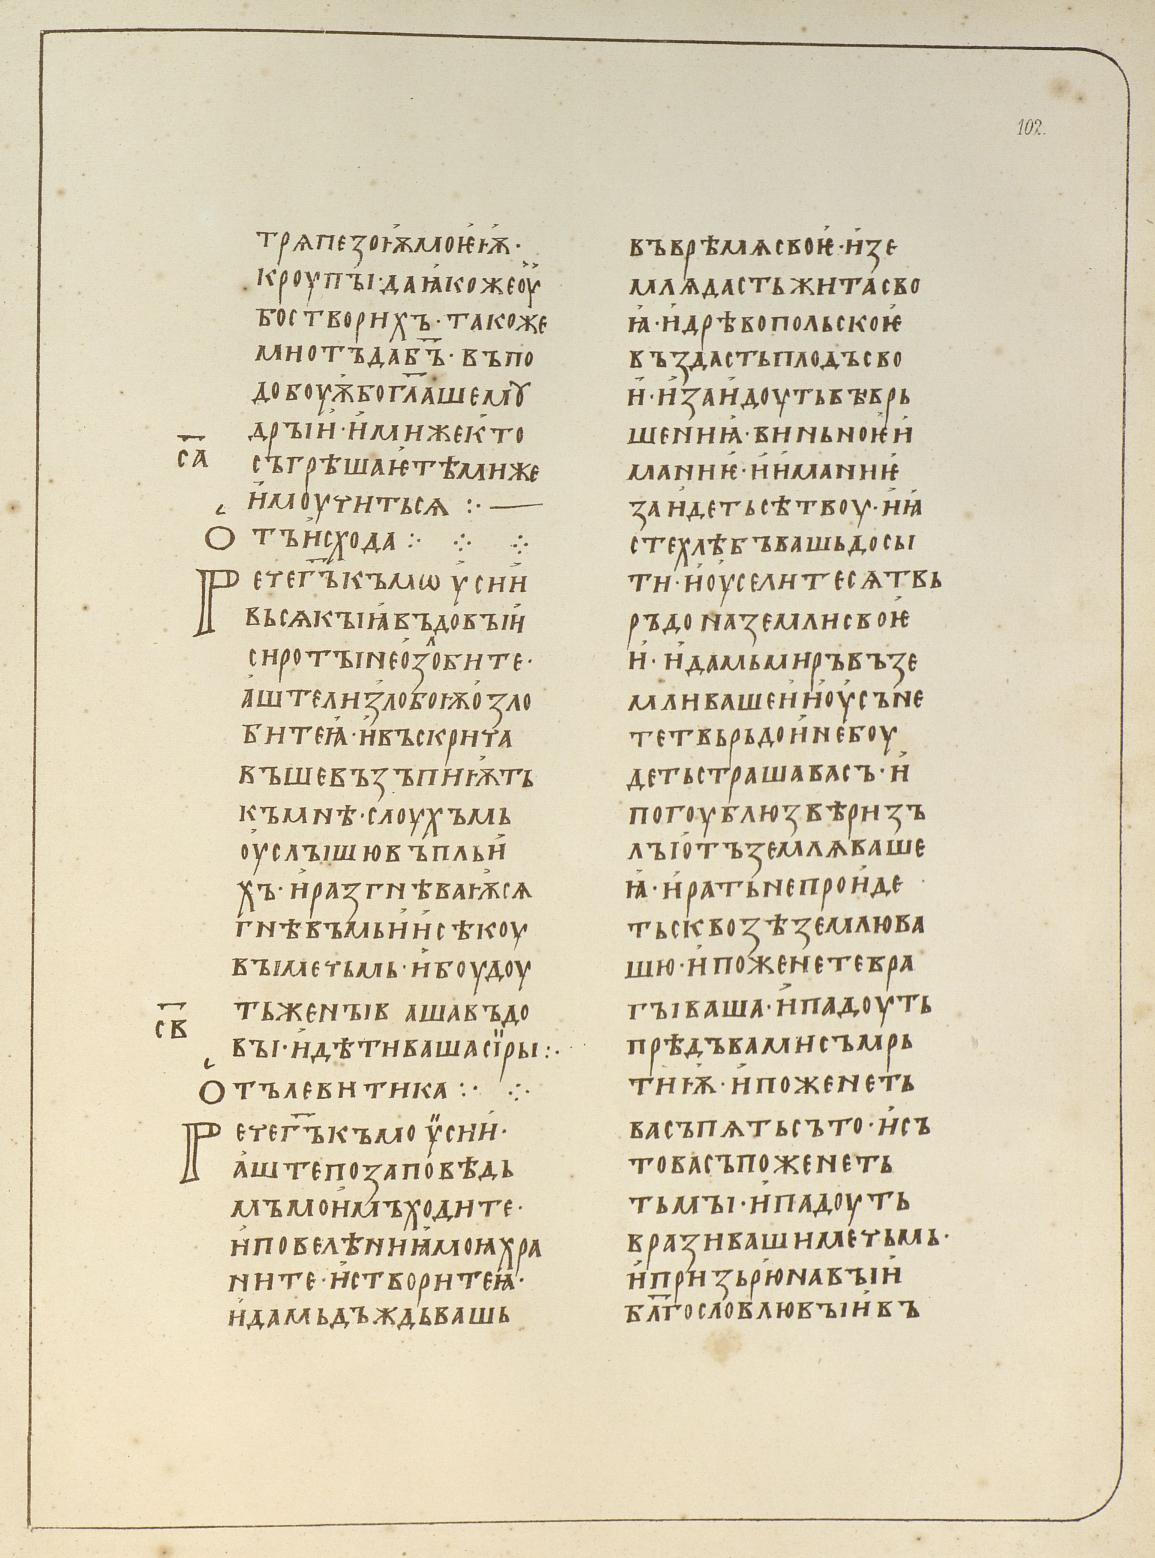 102.
трѧпезоѭмоѥѭ·
кроупъі·даꙗкожеоу
бостворихъ·такоже
мнотъдаб҃ъ·въпо
добоуѫбогл҃ашемꙋ
дръіи·имижекто
с҃а
съгрѣшаѥтѣмиже
имоучитьсѧ :· —
Отъисхода :· ·:· ·:·
Речег҃ъкъмѡусии
вьсѧкъіꙗвъдовъіи
сиротъінеозлобите·
аштелизлобоѭозло
битеꙗ·ивъскрича
въшевъзъпиѭть
къмнѣ·слоухъмь
оуслъішювъпльи
хъ·иразгнѣваѭсѧ
гнѣвъмьиисѣкоу
въімечьмь·ибоудоу
с҃в
тьженъів ашавъдо
въі·идѣтивашасиры:·
Отълевитика :· ·:·
Речег҃ъкъмоусии·
аштепозаповѣдь
мъмоимъходите·
иповелѣниꙗмоꙗхра
ните·истворитеꙗ·
идамьдъждьвашь
въврѣмѧсвоѥ·изе
млѧдастьжитасво
ꙗ·идрѣвопольскоѥ
въздастьплодъсво
и·изаидоутьвъврь
шениꙗ·виньноѥи
маниѥ·ииманиѥ
заидетьсѣтвоу·иꙗ
стехлѣбъвашьдосы
ти·иоуселитесѧтвь
рьдоназемлисвоѥ
и·идамьмиръвъзе
мливашеииоусъне
тетвьрьдоинебоу
детьстрашавасъ·и
погоублюзвѣризъ
лъіотъземлѧваше
ꙗ·иратьнепроиде
тьсквозѣземлюва
шю·ипоженетевра
гъіваша·ипадоуть
прѣдъвамисъмрь
тиѭ·ипоженеть
васъпѧтьсъто·исъ
товасъпоженеть
тьмъі·ипадоуть
вразивашимечьмь·
ипризьрюнавъіи
бл҃гословлювъіивъ